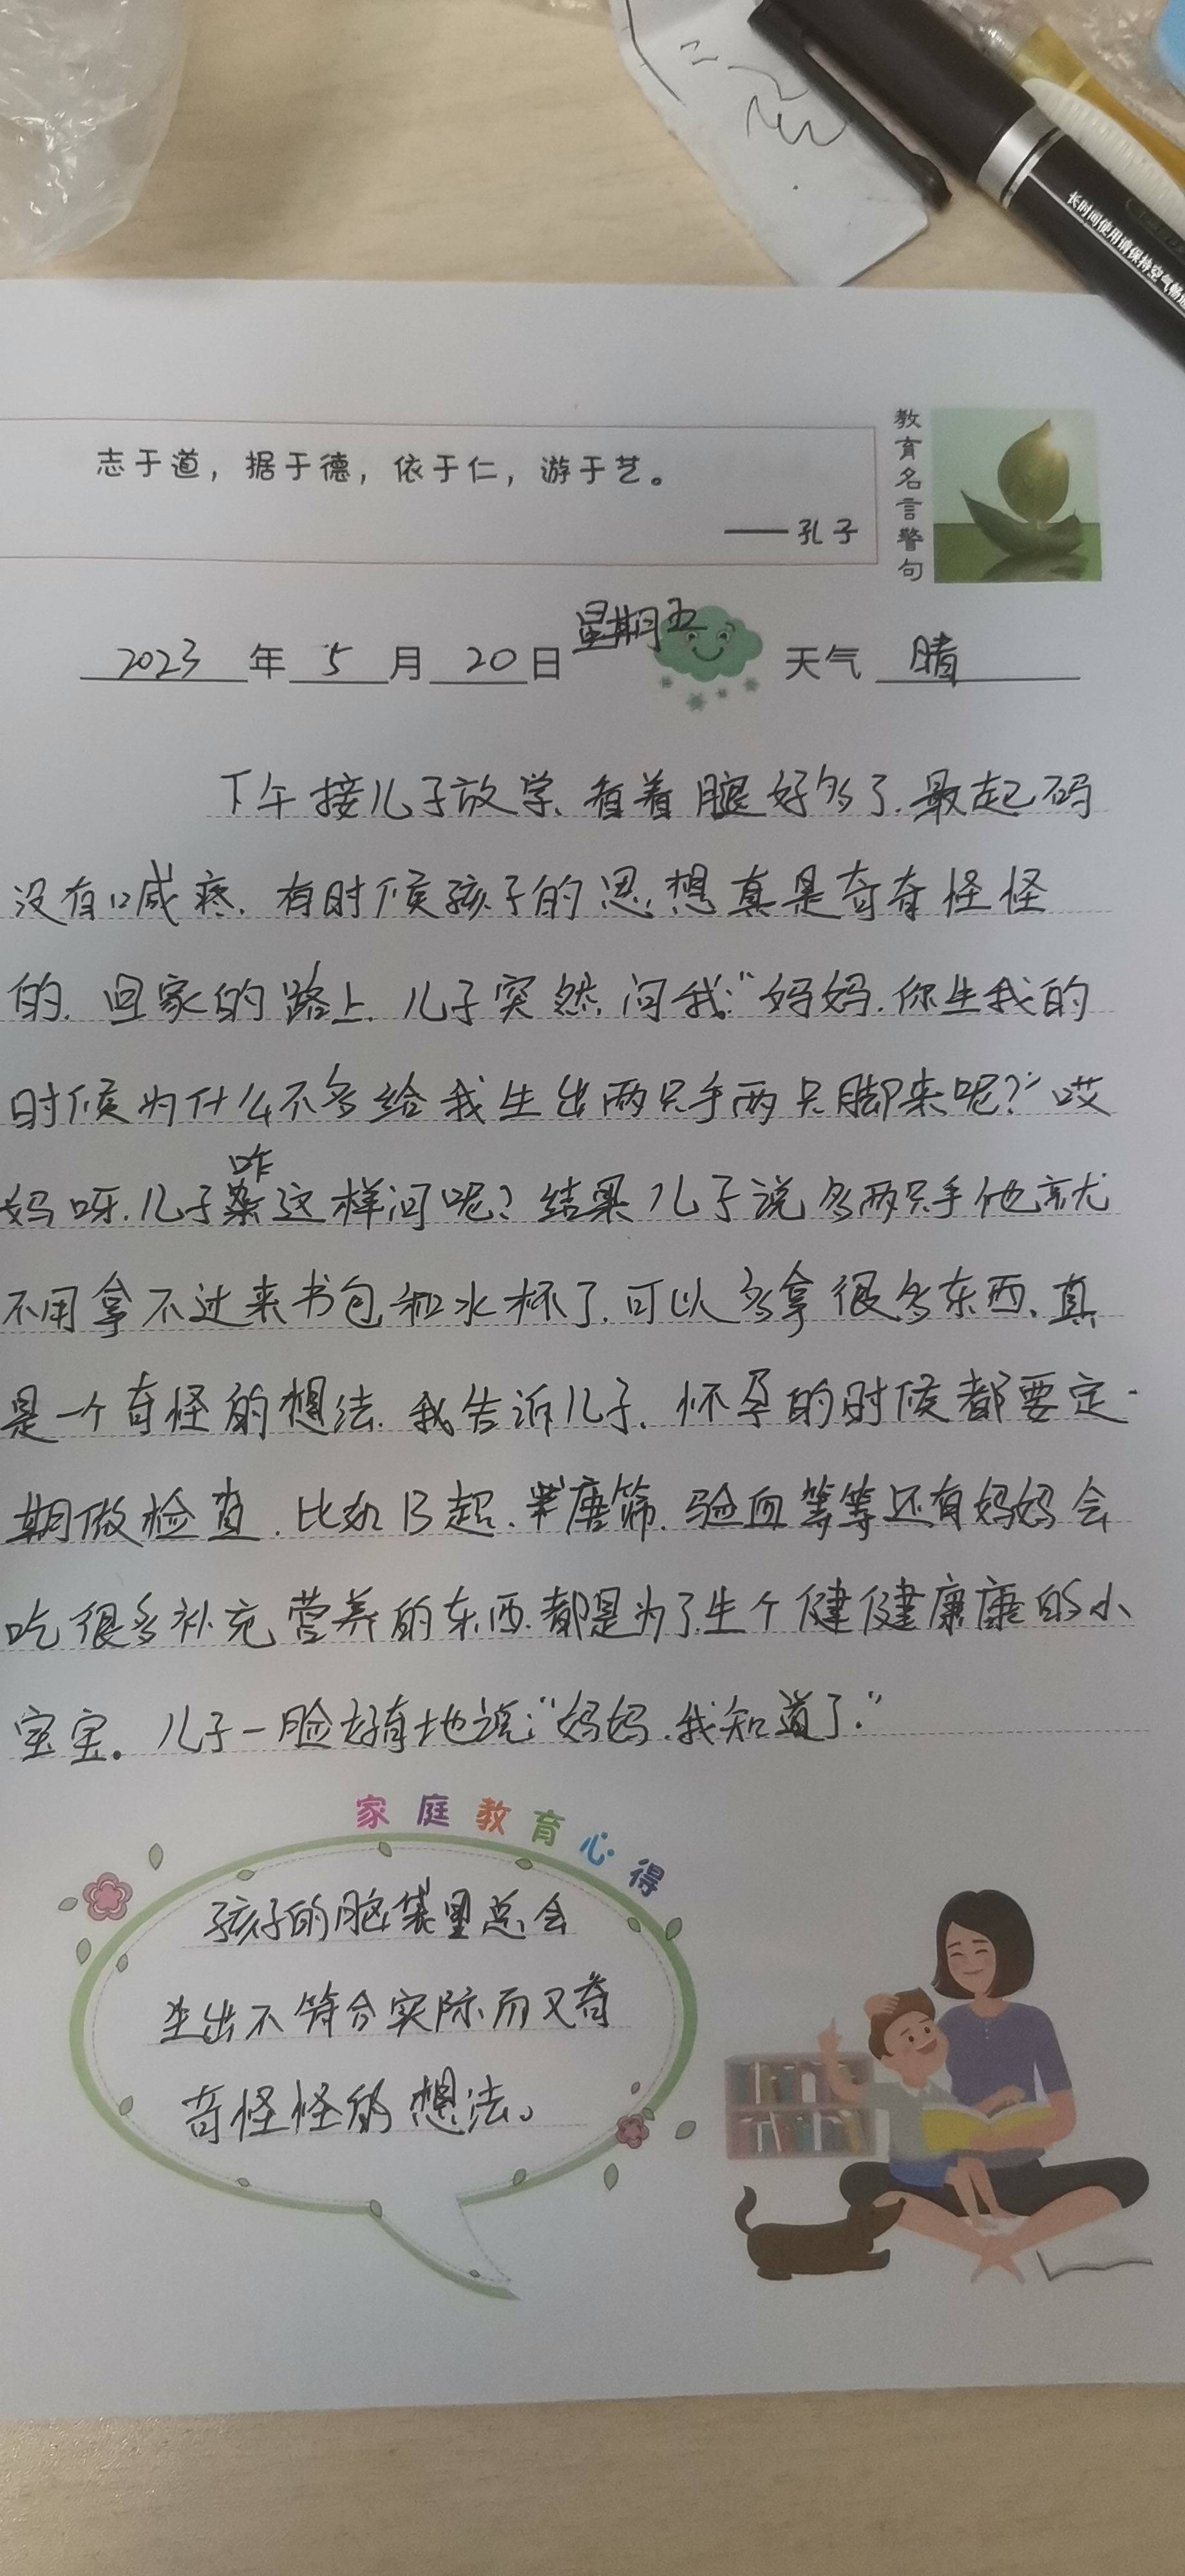 长时间使用请保持空气畅通
志于道，据于德，依于仁，游于艺。
——孔子
教育名言警句
2023年5月20日 星期五 天气 晴
下午接儿子放学、看着腿好多了.最起码
没有喊疼.有时候孩子的思想真是奇奇怪怪
的.回家的路上.儿子突然问我:“妈妈.你生我的
时候为什么不多给我生出两只手两只脚来呢?”哎
妈呀.儿子咋这样问呢?结果儿子说多两只手他就
不用拿不过来书包和水杯了.可以多拿很多东西、真
是一个奇怪的想法.我告诉儿子、怀孕的时候都要定
期做检查.比如B超、唐筛.验血等等还有妈妈会
吃很多补充营养的东西.都是为了生个健健康康的小
宝宝。儿子一脸好奇地说:“妈妈.我知道了.”
家庭教育心得
孩子的脑袋里总会
生出不符合实际而又奇
奇怪怪的想法。